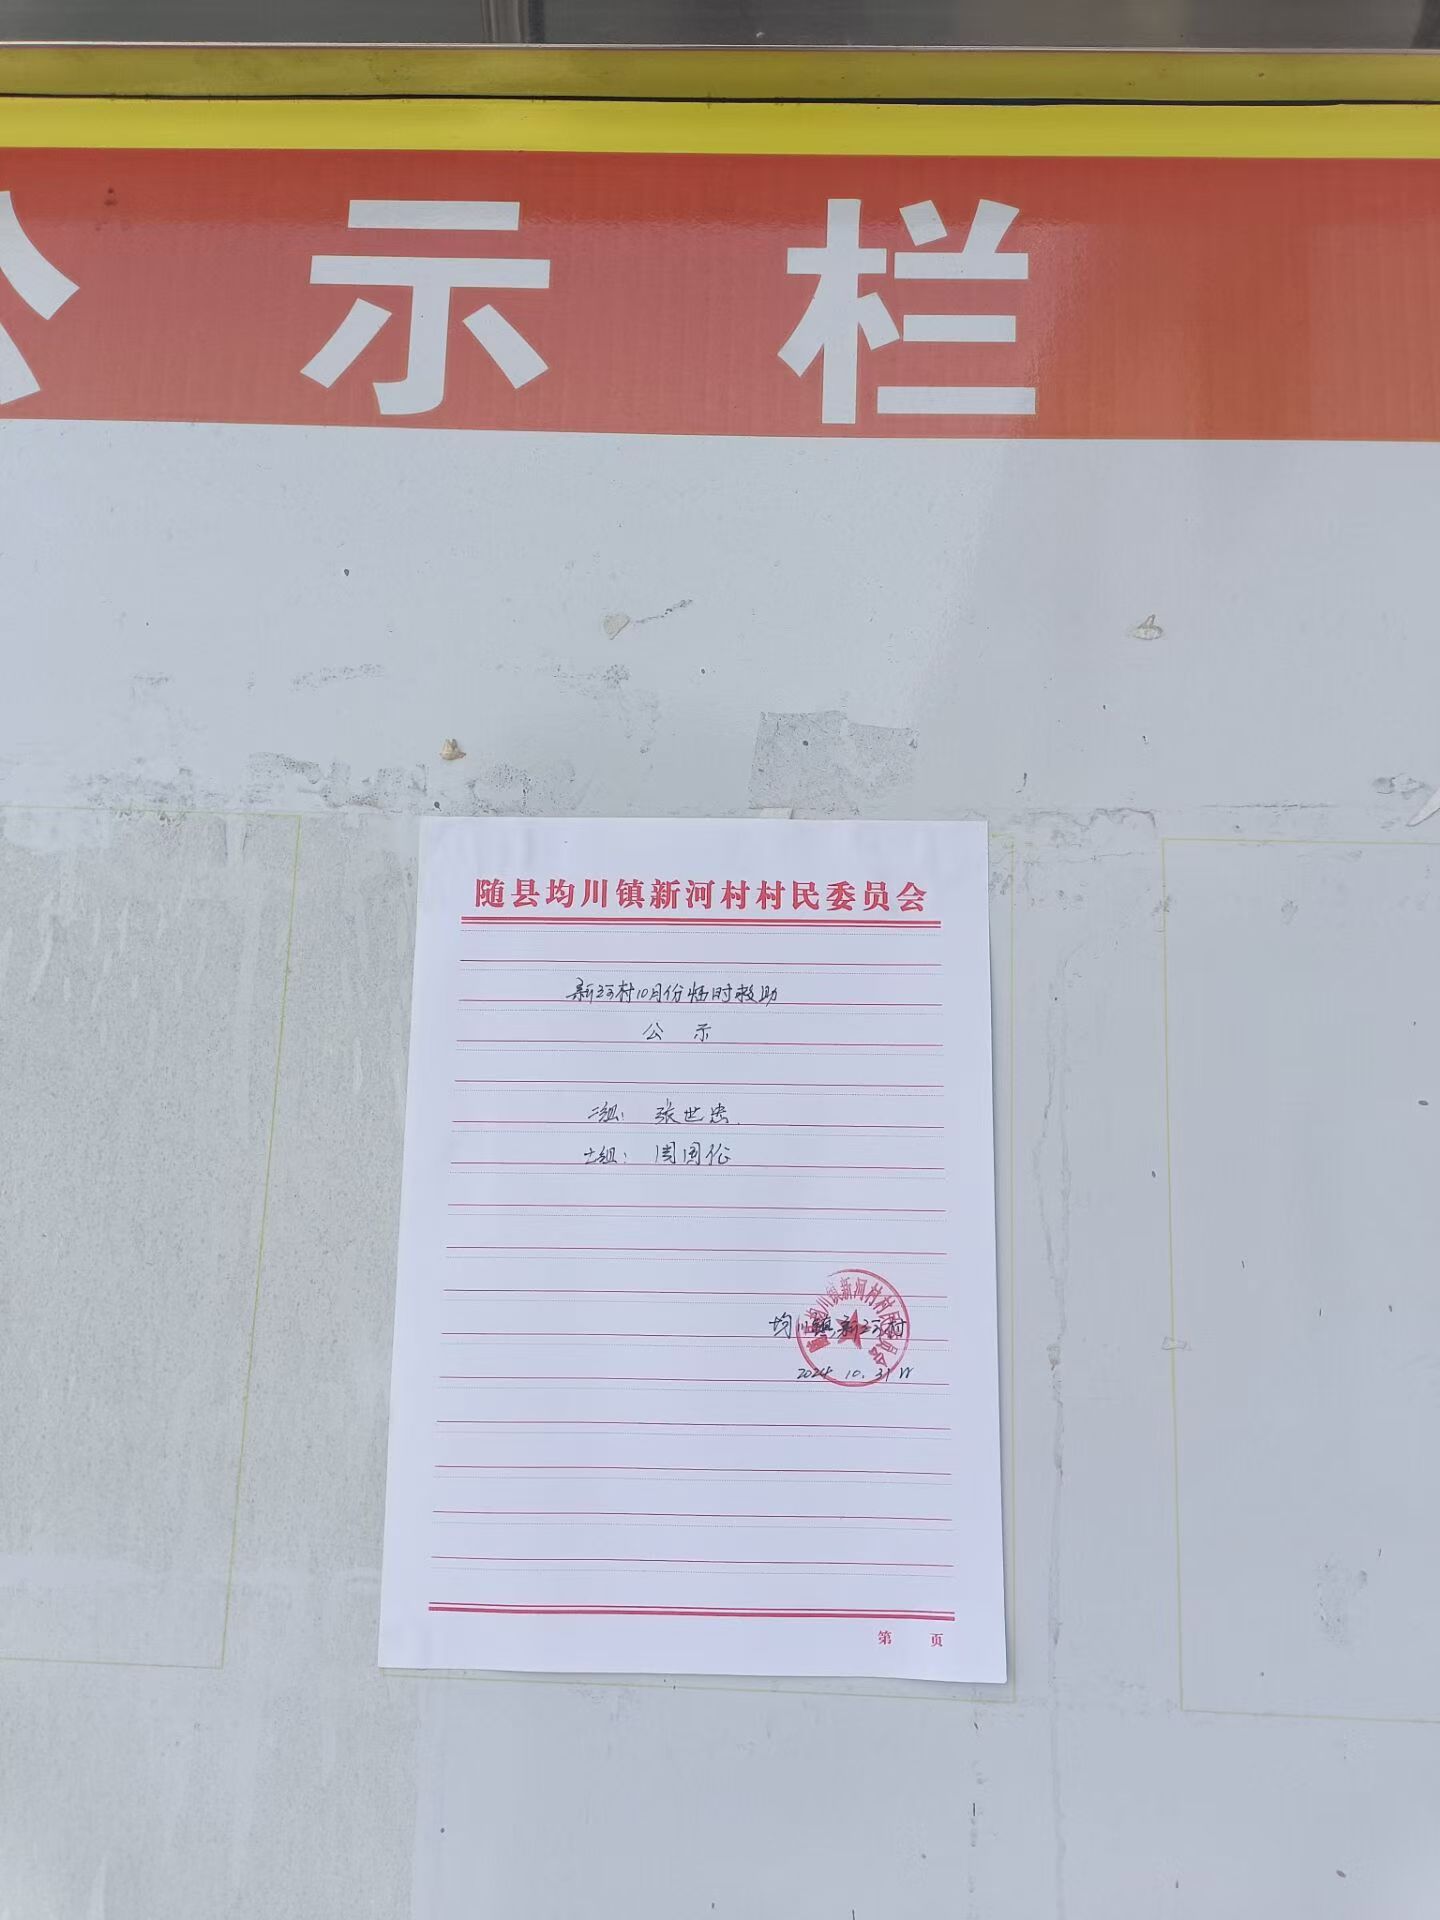 公示栏
随县均川镇新河村村民委员会
新河村10月份临时救助
公 示
二组: 张世忠
七组: 周国伦
均川镇新河村
2024.10.31日
均川镇新河村村民委员会
第 页